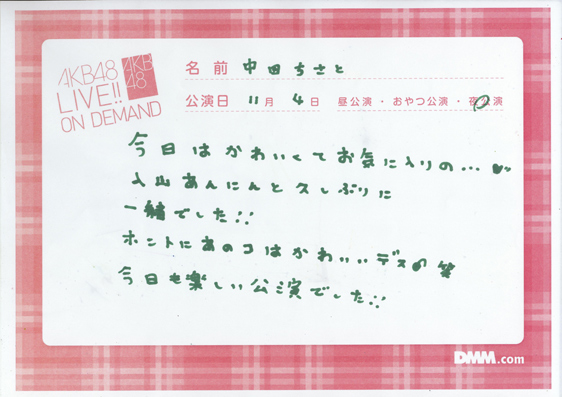 AKB48
LIVE!!
ON DEMAND
AKB
48
名前 中田ちさと
公演日 11月 4日 昼公演・おやつ公演・夜公演
今日はかわいくてお気に入りの…♥
入山あんにんと久しぶりに
一緒でした!!
ホントにあのコはかわいいデス 笑
今日も楽しい公演でした!!
DMM.com